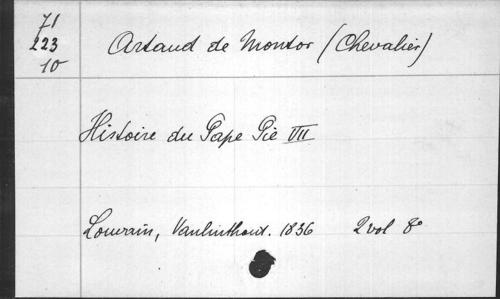 71
223
10
Artaud de Montor (Chevalier)
Histoire du Pape Pie VII
Louvain, Vanlinthout. 1836 2 vol 8°